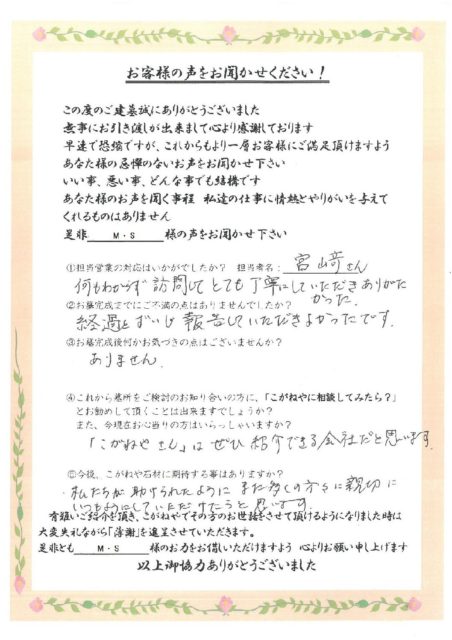 お客様の声をお聞かせください！
この度のご建墓誠にありがとうございました
無事にお引き渡しが出来まして心より感謝しております
早速で恐縮ですが、これからもより一層お客様にご満足頂けますよう
あなた様の忌憚のないお声をお聞かせ下さい
いい事、悪い事、どんな事でも結構です
あなた様のお声を聞く事程　私達の仕事に情熱とやりがいを与えて
くれるものはありません
是非　M・S　様の声をお聞かせ下さい
①担当営業の対応はいかがでしたか？　担当者名：宮崎さん
何もわからず 訪問してとても丁寧にしていただきありがた
かった.
②お墓完成までにご不満の点はありませんでしたか？
経過をずいじ 報告していただきよかったです.
③お墓完成後何かお気づきの点はございませんか？
ありません.
④これから墓所をご検討のお知り合いの方に、「こがねやに相談してみたら？」
とお勧めして頂くことは出来ますでしょうか？
また、今現在お心当りの方はいらっしゃいますか？
「こがねやさん」は ぜひ 紹介できる会社だと思います.
⑤今後、こがねや石材に期待する事はありますか？
・私たちが 助けられたように また多くの方々に親切に
いつもようにしていただけたらと思います.
有難いご紹介を頂き、こがねやでその方のお世話をさせて頂けるようになりました時は
大変失礼ながら「薄謝」を進呈させていただきます。
是非とも　M・S　様のお力をお借しいただけますよう　心よりお願い申し上げます
以上御協力ありがとうございました